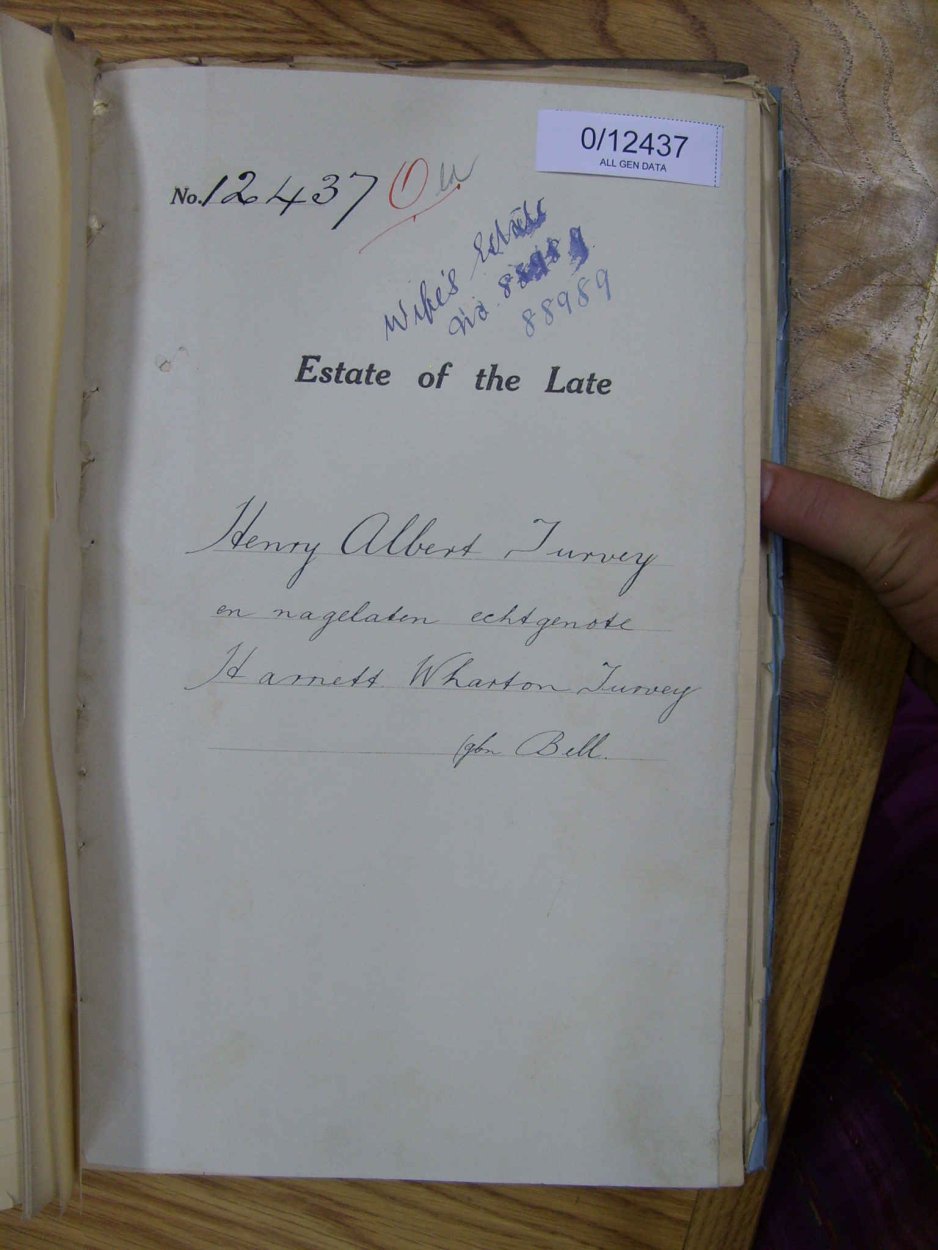 0/12437
ALL GEN DATA
No. 12437
Wife's Estate
No. 88989
88989
Estate of the Late
Henry Albert Turvey
en nagelaten echtgenote
Harnett Wharton Turvey
(gbn Bell.